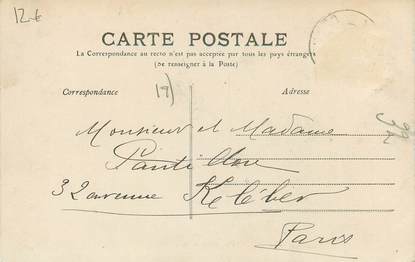 12 €
CARTE POSTALE
La Correspondance au recto n'est pas acceptée par tous les pays étrangers
(Se renseigner à la Poste)
Correspondance
Adresse
Monsieur et Madame
32 avenue Kléber
Paris